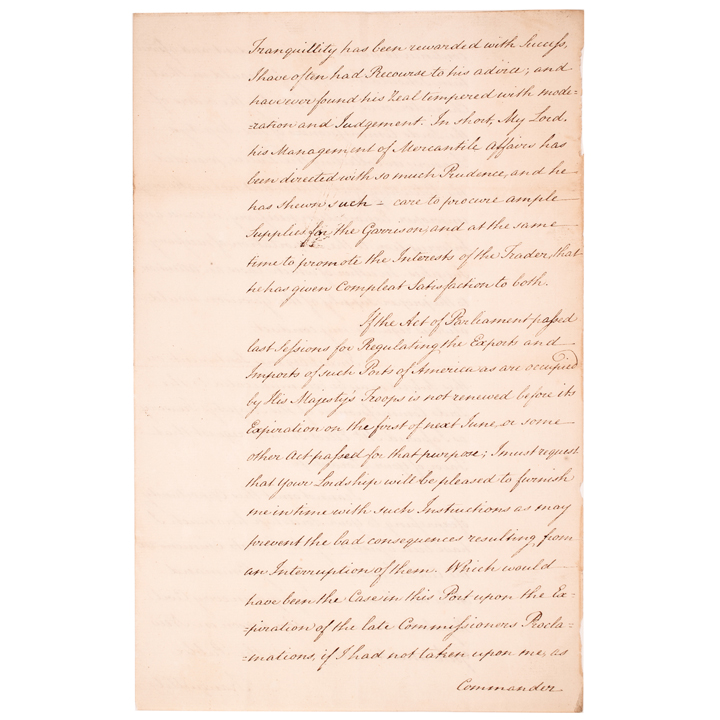 Tranquillity has been rewarded with Success,
I have often had Recourse to his advice; and
have ever found his Zeal tempered with mode=
=ration and Judgement. In short, My Lord,
his Management of Mercantile Affairs has
been directed with so much Prudence, and he
has shewn such = care to procure ample
Supplies for the Garrison, and at the same
time to promote the Interests of the Trader, that
he has given Compleat Satisfaction to both.
If the Act of Parliament passed
last Sessions for Regulating the Exports and
Imports of such Ports of America as are occupied
by His Majesty's Troops is not renewed before its
Expiration on the first of next June, or some
other Act passed for that purpose; I must request
that Your Lordship will be pleased to furnish
me in time with such Instructions as may
prevent the bad consequences resulting from
an Interruption of them. Which would
have been the Case in this Port upon the Ex=
=piration of the late Commissioners Procla=
=mations, if I had not taken upon me, as
Commander